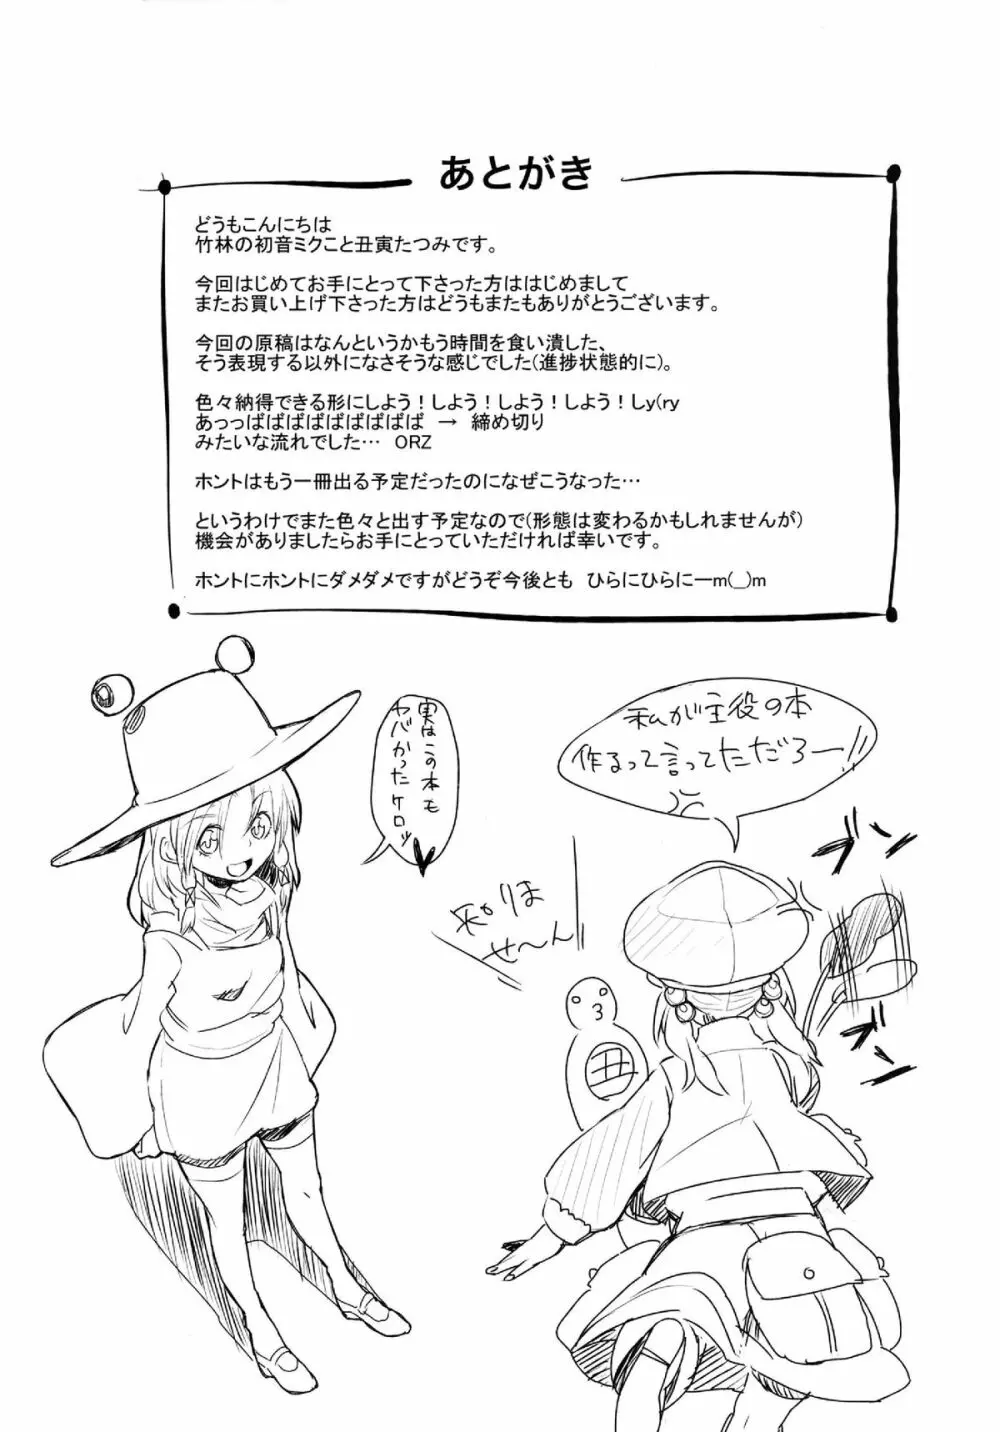 あとがき
どうもこんにちは
竹林の初音ミクこと丑寅たつみです。
今回はじめてお手にとって下さった方ははじめまして
またお買い上げ下さった方はどうもまたもありがとうございます。
今回の原稿はなんというかもう時間を食い潰した、
そう表現する以外になさそうな感じでした(進捗状態的に)。
色々納得できる形にしよう！しよう！しよう！しよう！しy(ry
あっっぱばばばばばばばばば → 締め切り
みたいな流れでした… ORZ
ホントはもう一冊出る予定だったのになぜこうなった…
というわけでまた色々と出す予定なので(形態は変わるかもしれませんが)
機会がありましたらお手にとっていただければ幸いです。
ホントにホントにダメダメですがどうぞ今後とも ひらにひらにーm(__)m
私が主役の本
作るって言ってただろー!!
実はこの本も
ヤバかったケロッ
ブンッ
知りま
せ〜ん
丑
ブンッ